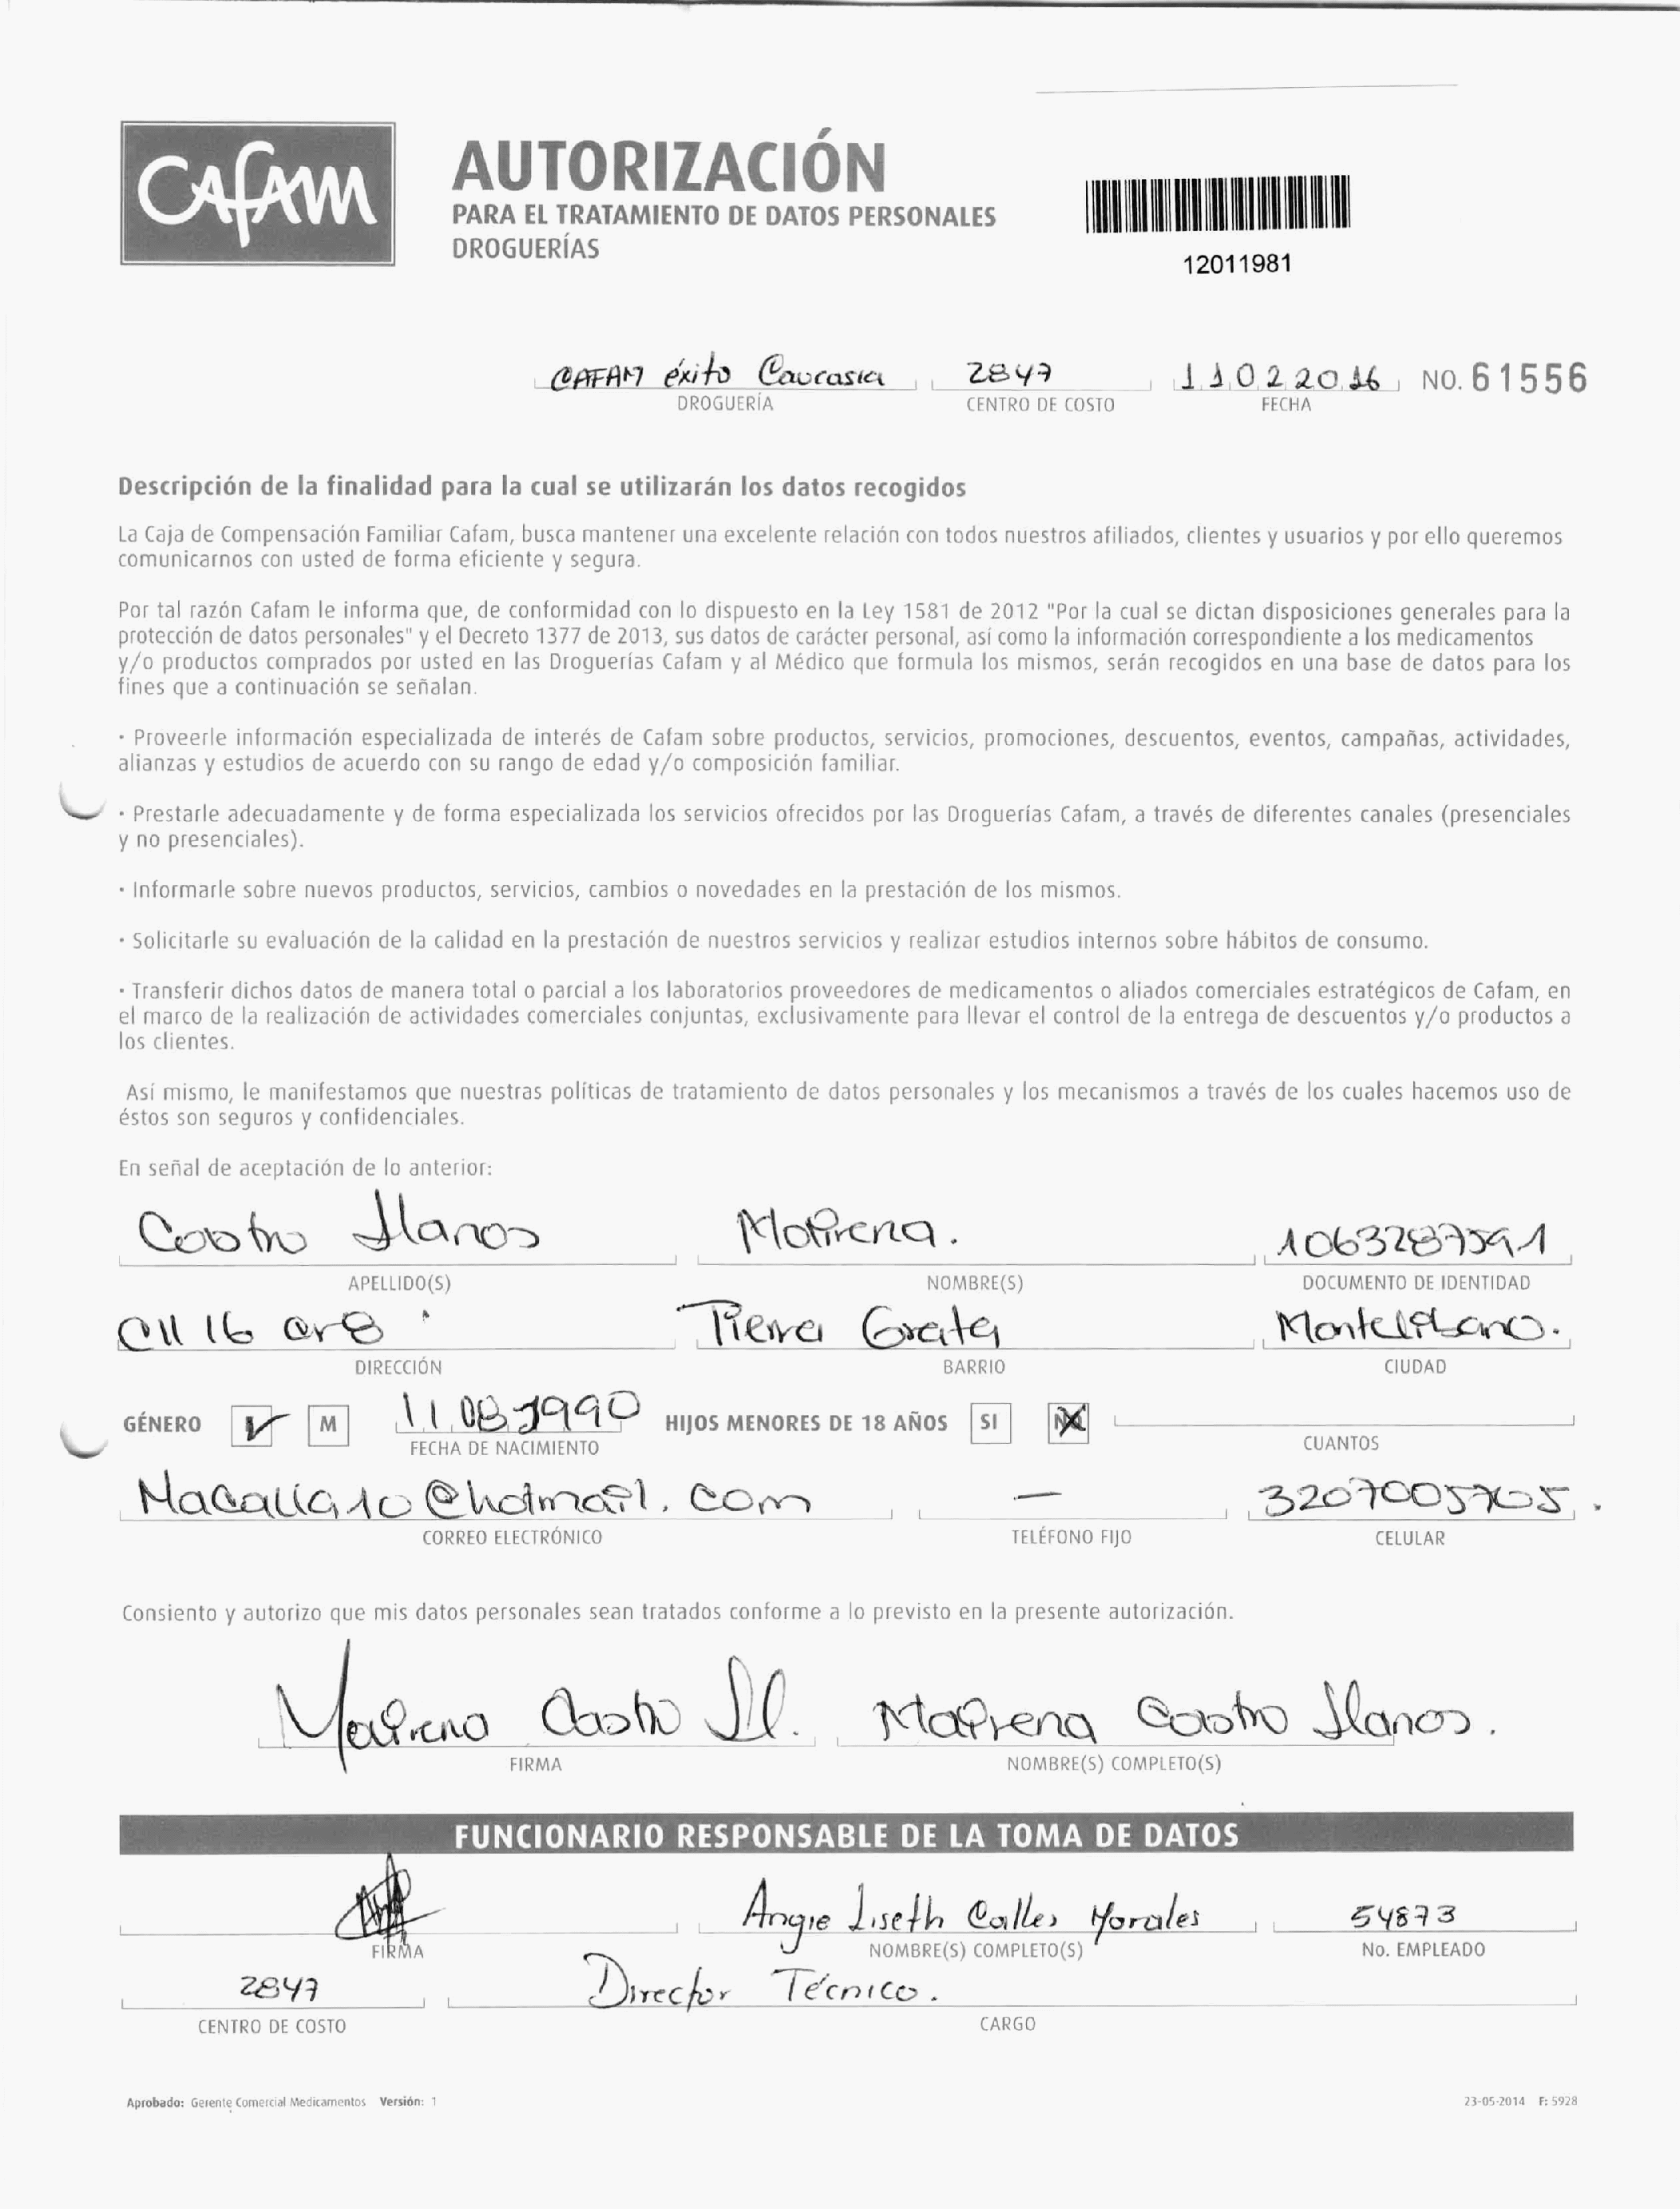 CAFAM
AUTORIZACIÓN
PARA EL TRATAMIENTO DE DATOS PERSONALES
DROGUERÍAS
12011981
CAFAM éxito Caucasia 2847 11022016 NO. 61556
DROGUERÍA CENTRO DE COSTO FECHA
Descripción de la finalidad para la cual se utilizarán los datos recogidos
La Caja de Compensación Familiar Cafam, busca mantener una excelente relación con todos nuestros afiliados, clientes y usuarios y por ello queremos
comunicarnos con usted de forma eficiente y segura.
Por tal razón Cafam le informa que, de conformidad con lo dispuesto en la Ley 1581 de 2012 "Por la cual se dictan disposiciones generales para la
protección de datos personales" y el Decreto 1377 de 2013, sus datos de carácter personal, así como la información correspondiente a los medicamentos
y/o productos comprados por usted en las Droguerías Cafam y al Médico que formula los mismos, serán recogidos en una base de datos para los
fines que a continuación se señalan.
· Proveerle información especializada de interés de Cafam sobre productos, servicios, promociones, descuentos, eventos, campañas, actividades,
alianzas y estudios de acuerdo con su rango de edad y/o composición familiar.
· Prestarle adecuadamente y de forma especializada los servicios ofrecidos por las Droguerías Cafam, a través de diferentes canales (presenciales
y no presenciales).
· Informarle sobre nuevos productos, servicios, cambios o novedades en la prestación de los mismos.
· Solicitarle su evaluación de la calidad en la prestación de nuestros servicios y realizar estudios internos sobre hábitos de consumo.
· Transferir dichos datos de manera total o parcial a los laboratorios proveedores de medicamentos o aliados comerciales estratégicos de Cafam, en
el marco de la realización de actividades comerciales conjuntas, exclusivamente para llevar el control de la entrega de descuentos y/o productos a
los clientes.
Así mismo, le manifestamos que nuestras políticas de tratamiento de datos personales y los mecanismos a través de los cuales hacemos uso de
éstos son seguros y confidenciales.
En señal de aceptación de lo anterior:
Castro Llanos Mairena. 1063287591
APELLIDO(S) NOMBRE(S) DOCUMENTO DE IDENTIDAD
Cll 16 cr8 Tierra Grata Montelibano.
DIRECCIÓN BARRIO CIUDAD
GÉNERO M 11 08 1990 HIJOS MENORES DE 18 AÑOS SI NO
FECHA DE NACIMIENTO CUANTOS
@hotmail.com — 3207005705.
CORREO ELECTRÓNICO TELÉFONO FIJO CELULAR
Consiento y autorizo que mis datos personales sean tratados conforme a lo previsto en la presente autorización.
Mairena Castro Ll. Mairena Castro Llanos.
FIRMA NOMBRE(S) COMPLETO(S)
FUNCIONARIO RESPONSABLE DE LA TOMA DE DATOS
Angie Liseth Calles Morales 54873
FIRMA NOMBRE(S) COMPLETO(S) No. EMPLEADO
2847 Director Técnico.
CENTRO DE COSTO CARGO
Aprobado: Gerente Comercial Medicamentos Versión: 1 23-05-2014 F: 5928